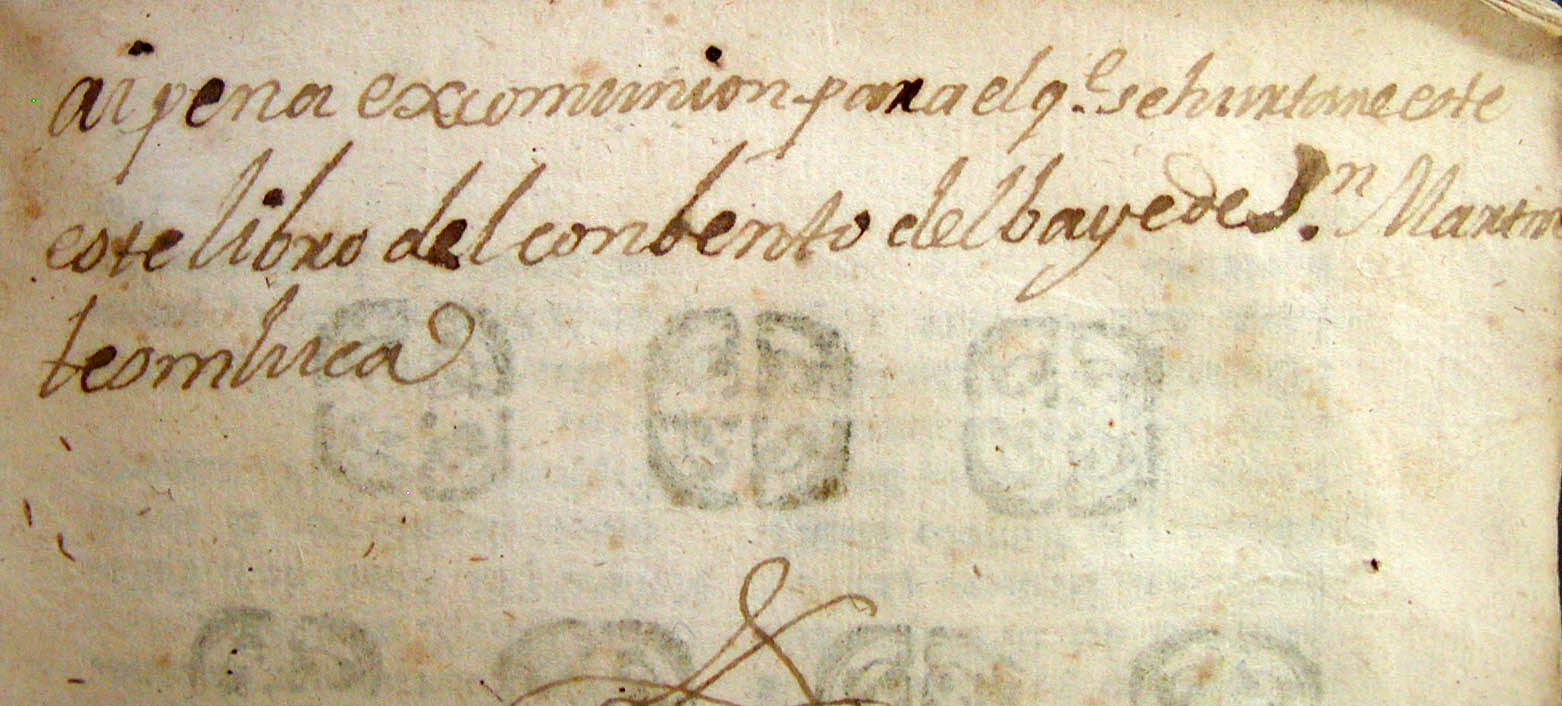 ai pena excomunion para el q.e se hurtare este
este libro del conbento del baye de S.n Martin
teomluca